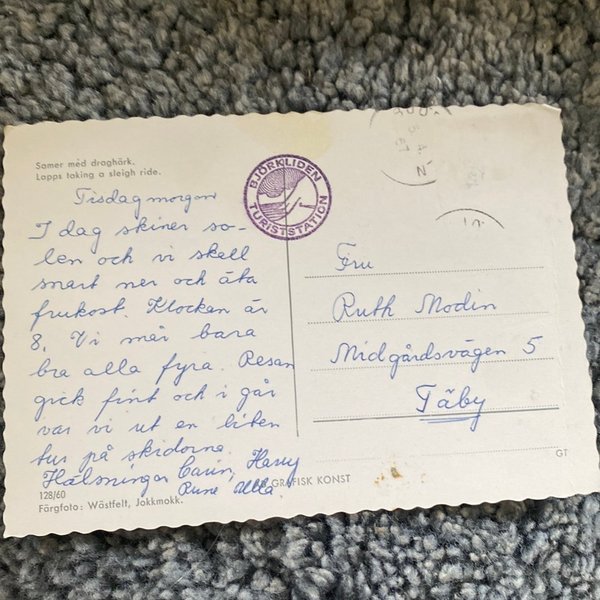 Samer med draghärk.
Lapps taking a sleigh ride.
Tisdagmorgon
I dag skiner so-
len och vi skall
snart ner och äta
frukost. Klockan är
8. Vi mår bara
bra alla fyra. Resan
gick fint och i går
var vi ut en liten
tur på skidorna.
Hälsningar Carin, Harry
Rune Ulla
128/60
Färgfoto: Wästfelt, Jokkmokk.
BJÖRKLIDEN
TURISTSTATION
Fru
Ruth Modin
Midgårdsvägen 5
Täby
GRAFISK KONST
GT